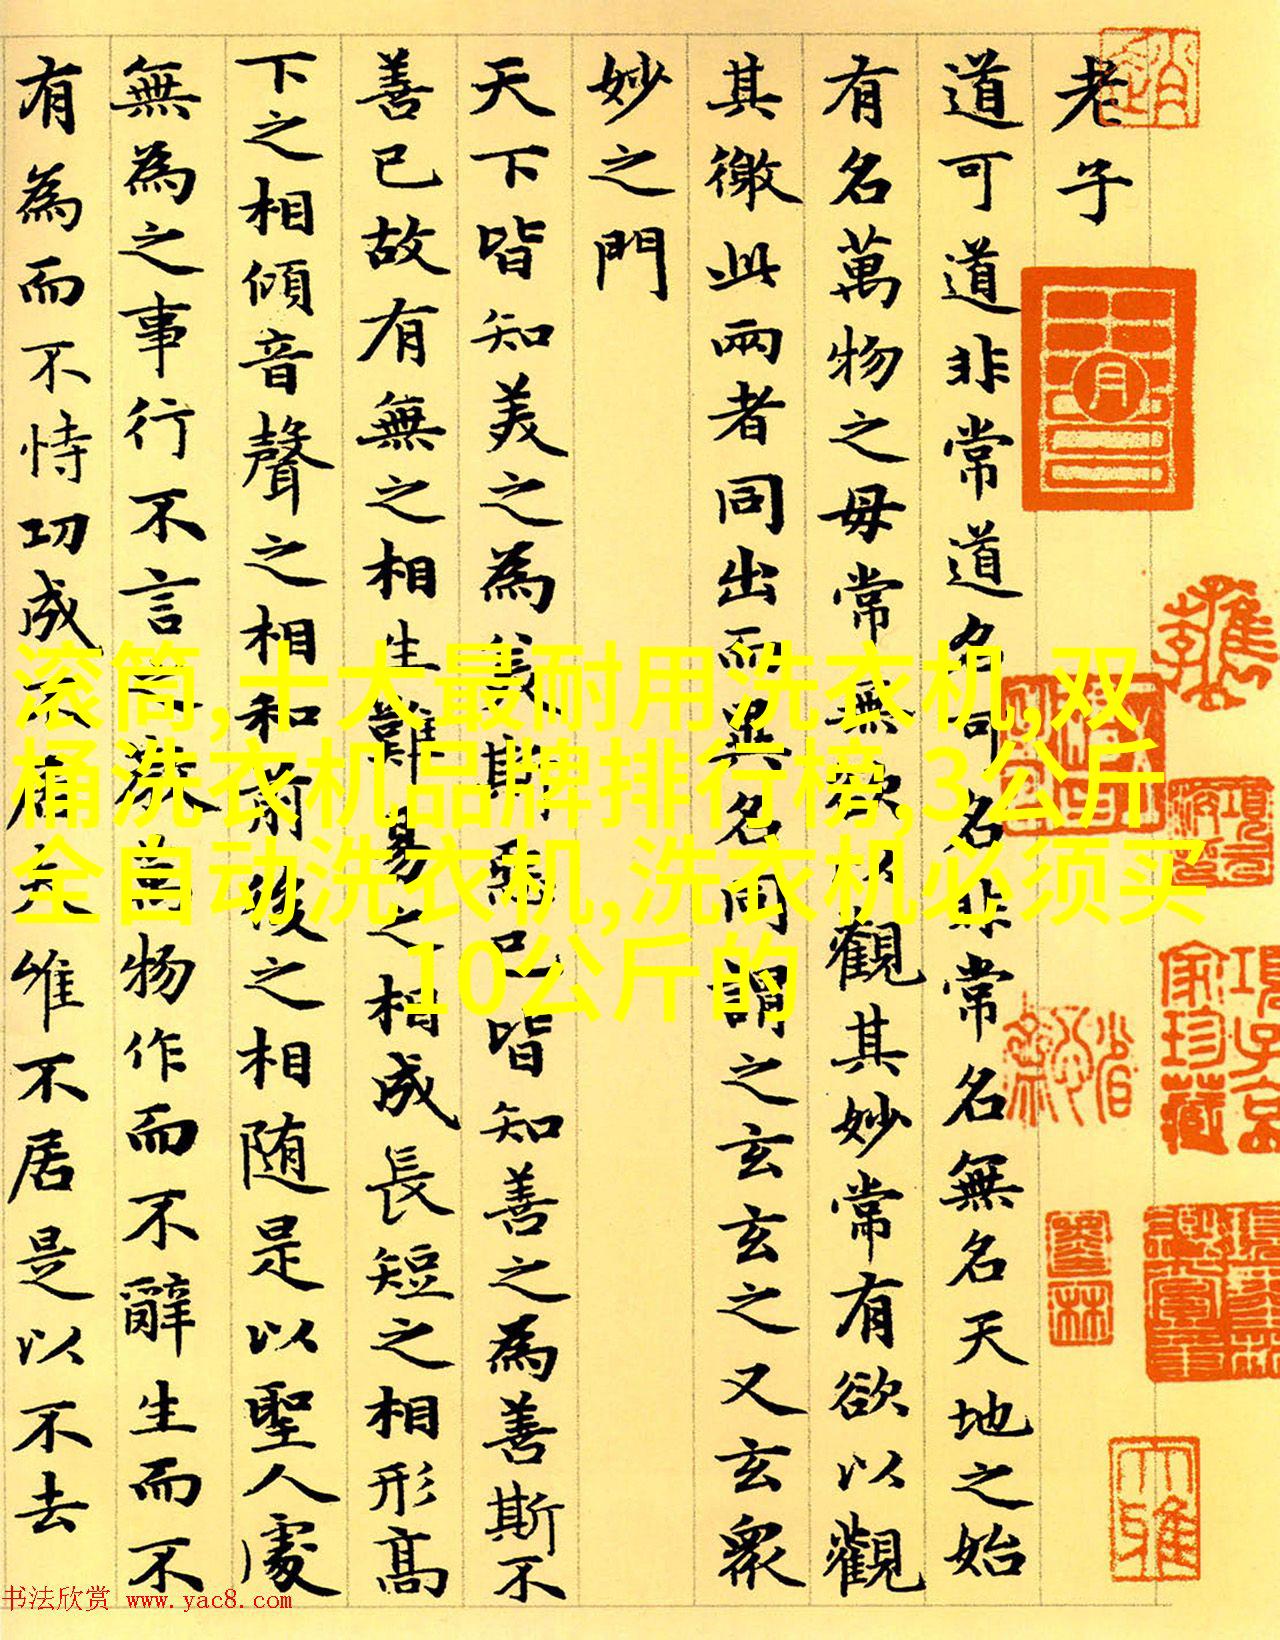 老子
道可道非常道名可名非常名無名天地之始
有名萬物之母常無欲以觀其妙常有欲以觀
其徼此兩者同出而異名同謂之玄玄之又玄衆
妙之門
天下皆知美之為美斯惡已皆知善之為善斯不
善已故有無之相生難易之相成長短之相形高
下之相傾音聲之相和前後之相随是以聖人處
無為之事行不言之教萬物作而不辭生而不
有為而不恃功成不居夫惟不居是以不去
滚筒,十大最耐用洗衣机,双
桶洗衣机品牌排行榜,3公斤
全自动洗衣机,洗衣机必须买
10公斤的
項子京
家珍藏
书法欣赏 www.yac8.com